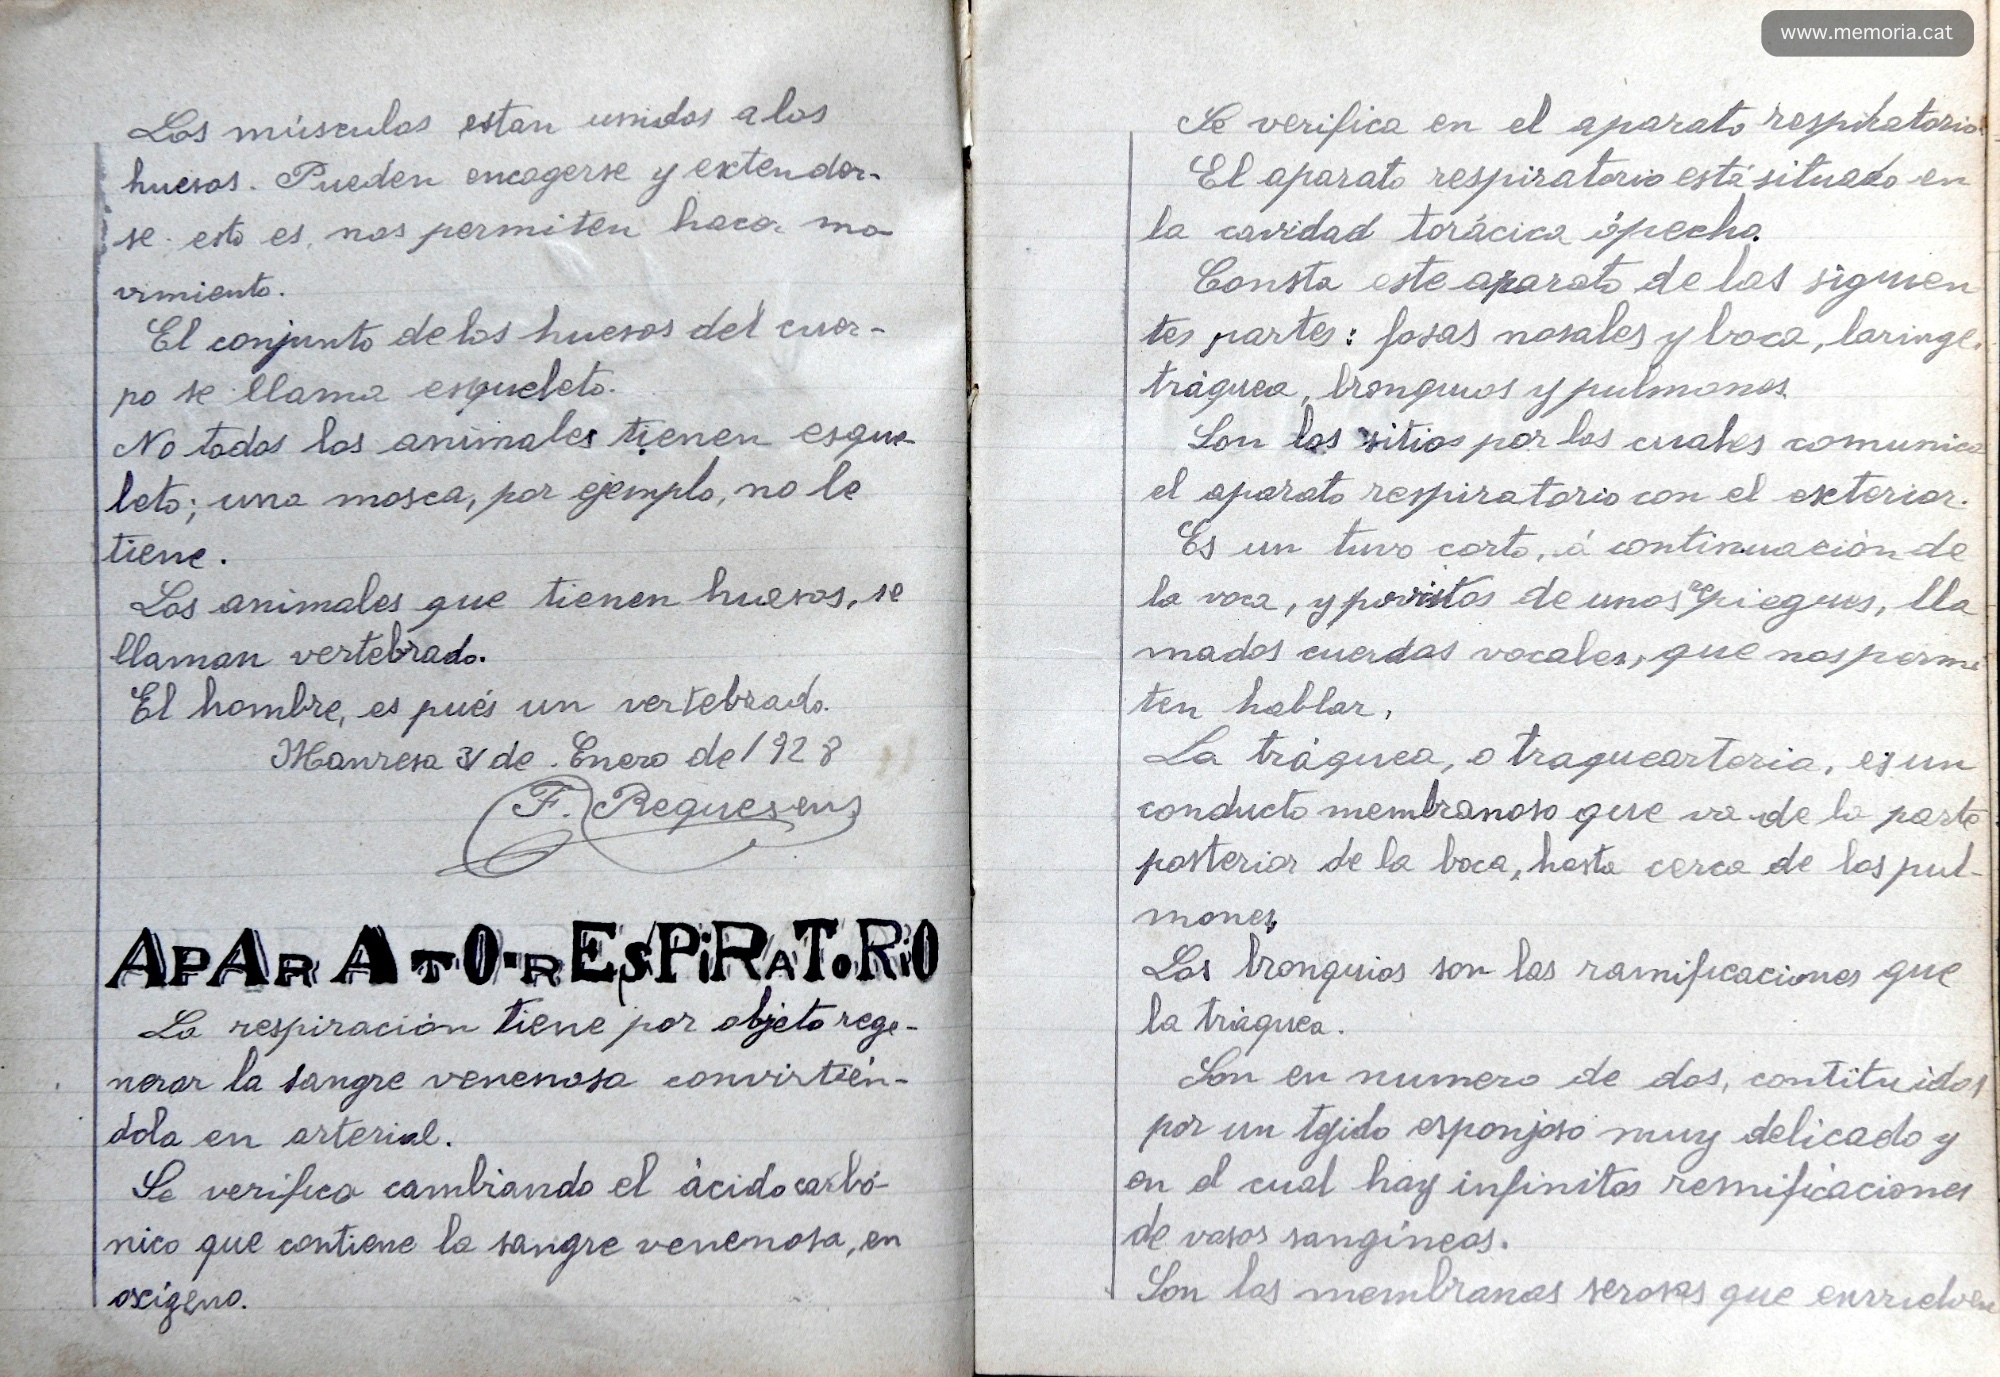 www.memoria.cat
Los músculos estan unidos a los
huesos. Pueden encogerse y extender-
se. esto es, nos permiten hacer mo
vimiento.
El conjunto de los huesos del cuer-
po se llama esqueleto.
No todos los animales tienen esque
leto; una mosca, por ejemplo, no le
tiene.
Los animales que tienen huesos, se
llaman vertebrado.
El hombre, es pués un vertebrado.
Manresa 31 de Enero de 1928
F. Requesens
APARATO-RESPIRATORIO
La respiración tiene por objeto rege-
nerar la sangre venenosa convirtién-
dola en arterial.
Se verifica cambiando el ácido carbó-
nico que contiene la sangre venenosa, en
oxígeno.
Se verifica en el aparato respiratorio.
El aparato respiratorio está situado en
la cavidad torácica ó pecho.
Consta este aparato de las siguien
tes partes: fosas nosales y boca, laringe,
tráquea, bronquios y pulmones.
Son los sitios por los cuales comunica
el aparato respiratorio con el exterior.
Es un tuvo corto, á continuación de
la voca, y povistos de unos piegues, lla
mados cuerdas vocales, que nos permi
ten hablar,
La tráquea, o traquearteria, es un
conducto membranoso que va de la parte
posterior de la boca, hasta cerca de los pul-
mones,
Los bronquios son las ramificaciones que
la tráquea.
Son en numero de dos, contituidos
por un tejido esponjoso muy delicado y
en el cual hay infinitas remificaciones
de vasos sangíneos.
Son las membranas serosas que envuelven